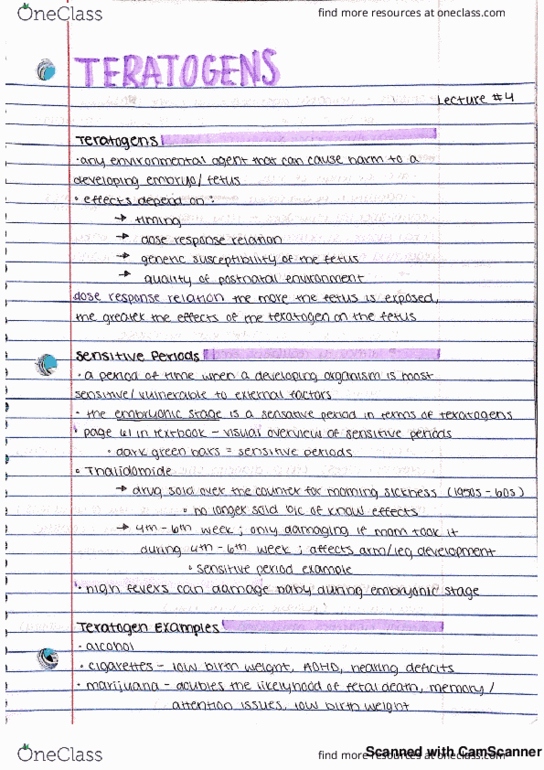 OneClass find more resources at oneclass.com
TERATOGENS
Lecture #4
Teratogens
• any environmental agent that can cause harm to a
developing embryo/ fetus
• effects depend on:
→ timing
→ dose response relation
→ genetic susceptibility of the fetus
→ quality of postnatal environment
dose response relation the more the fetus is exposed,
the greater the effects of the teratogen on the fetus
Sensitive Periods
• a period of time when a developing organism is most
sensitive/ vulnerable to external factors
• the embryonic stage is a sensative period in terms of teratogens
• page 61 in textbook - visual overview of sensitive periods
• dark green bars = sensitive periods
• Thalidomide
→ drug sold over the counter for morning sickness (1950s - 60s)
• no longer sold b/c of know effects
→ 4th - 6th week ; only damaging if mom took it
during 4th - 6th week ; affects arm/leg development
• sensitive period example
• high fevers can damage baby during embryonic stage
Teratogen Examples
• alcohol
• cigarettes - low birth weight, ADHD, hearing deficits
• marijuana - doubles the likelyhood of fetal death, memory/
attention issues, low birth weight
OneClass find more resources at oneclass.com
Scanned with CamScanner